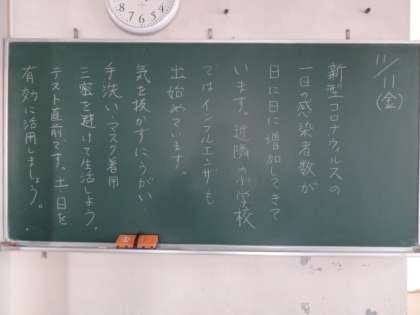 11/11(金)
新型コロナウィルスの
一日の感染者数が
日に日に増加してきて
います。近隣の小学校
ではインフルエンザも
出始めています。
気を抜かずにうがい
手洗い、マスク着用
三密を避けて生活しよう。
テスト直前です。土日を
有効に活用しましょう。